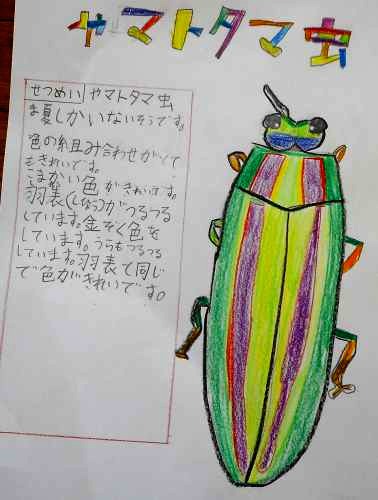 ヤマトタマ虫
せつめい ヤマトタマ虫
ま夏しかいないそうです。
色の組み合わせがとて
もきれいです。
こまかい色がきれいです。
羽表(しょう)がつるつる
しています。金ぞく色を
しています。うらもつるつる
しています。羽表と同じ
で色がきれいです。